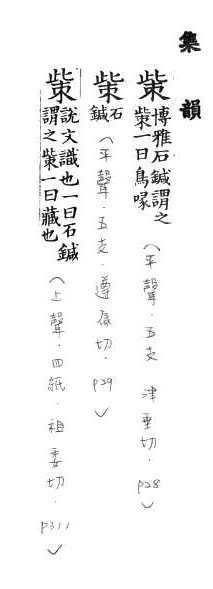 集韻
㭰博雅石鍼謂之㭰一曰鳥喙（平聲．五支 津垂切．p28✓
㭰石鍼（平聲．五支．遵為切．p29✓
㭰說文識也一曰石鍼謂之㭰一曰藏也（上聲．四紙．祖委切．p311✓